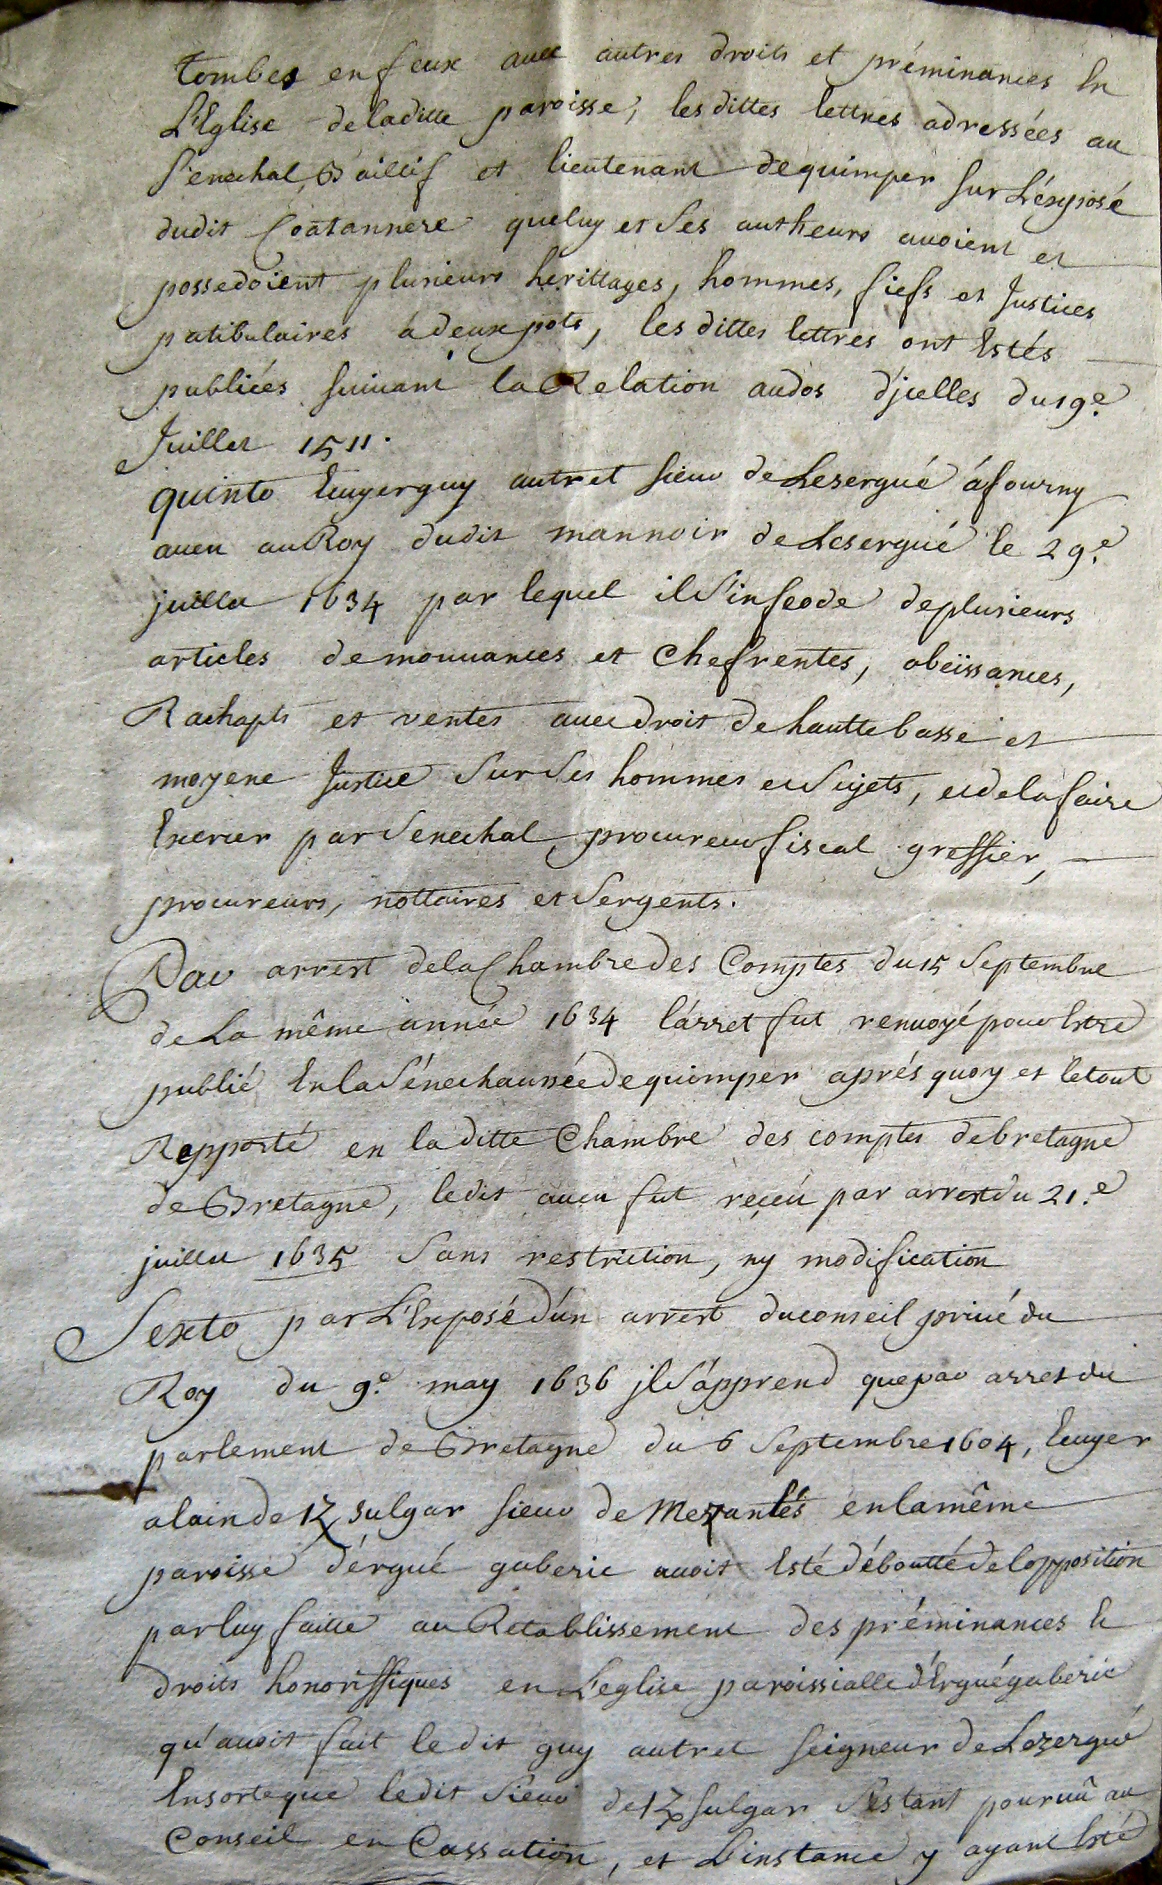 tombes enfeux avec autres droits et préminances En
L'Eglise deladitte paroisse, lesdittes lettres adressées au
Senechal, Baillif et lieutenant dequimper sur L'éxposé
dudit Coatannere queluy et Ses autheurs avoient et
possedoient plusieurs herittages, hommes, fiefs et Justices
patibulaires a deux pots, lesdittes lettres ont Estés
publiées suivant la Relation audos d'jcelles du 19e.
Juillet 1511.
quinto Ecuyer guy autret sieur de Lesergué á fourny
aveu au Roy dudit mannoir de Lesergué le 29e.
juillet 1634 par lequel il S'infeode deplusieurs
articles demouvances et Chefrentes, obeïssances,
Rachapts et ventes avec droit de hautte basse et
moyene Justice Sur Ses hommes et Sujets, et de la faire
Exercer par Senechal, procureur fiscal greffier,
procureurs, nottaires et Sergents.
Par arrest delaChambre des Comptes du 15 Septembre
de La même année 1634 l'árret fut renvoyé pour Estre
publié En la Sénechaussée dequimper aprés quoy et letout
Rapporté en laditte Chambre des comptes debretagne
de Bretagne, ledit aveu fut reçeu par arrest du 21.e
juillet 1635 Sans restriction, ny modification
Sexto par L'Exposé d'un arrest duconseil privé du
Roy du 9e. may 1636 jl S'ápprend quepar arrest du
parlement de Bretagne du 6 Septembre 1604, Ecuyer
alain de Kysulgar sieur de Mezanlés enlamême
paroisse d'érgué gaberic avoit Esté débouttédelopposition
parluy faitte au Retablissement des préminances Et
droits honoriffiques en L'eglise paroissialle d'Erguégaberic
qu'avoit fait ledit guy autret seigneur de Lezergué
Ensorteque ledit Sieur de Kysulgar S'estant pourvû au
Conseil en Cassation, et L'instance y ayant Esté